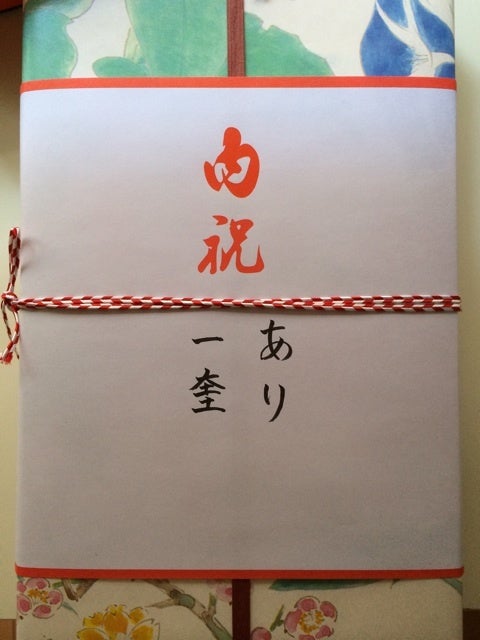 内祝
あり
一奎